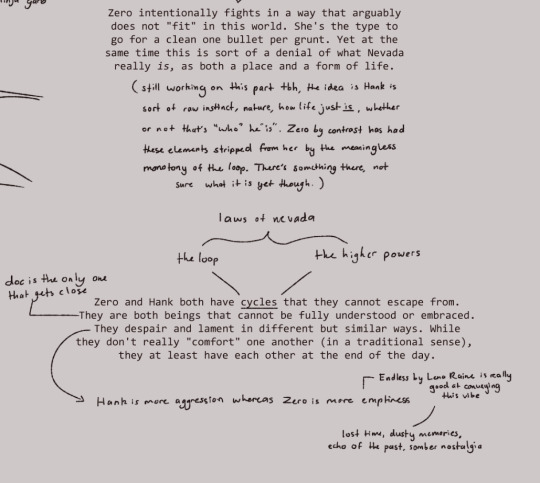 garb
Zero intentionally fights in a way that arguably
does not "fit" in this world. She's the type to
go for a clean one bullet per grunt. Yet at the
same time this is sort of a denial of what Nevada
really is, as both a place and a form of life.
(still working on this part tbh, the idea is Hank is
sort of raw instinct, nature, how life just is, whether
or not that's "who" he "is". Zero by contrast has had
these elements stripped from her by the meaningless
monotony of the loop. There's something there, not
sure what it is yet though.)
laws of nevada
the loop
the higher powers
doc is the only one
that gets close
Zero and Hank both have cycles that they cannot escape from.
They are both beings that cannot be fully understood or embraced.
They despair and lament in different but similar ways. While
they don't really "comfort" one another (in a traditional sense),
they at least have each other at the end of the day.
Hank is more aggression whereas Zero is more emptiness
Endless by Lena Raine is really
good at conveying
this vibe
lost time, dusty memories,
echo of the past, somber nostalgia